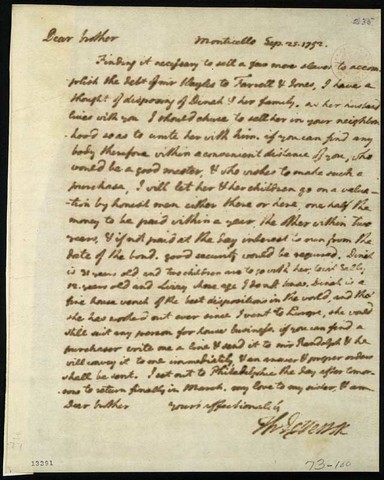 Dear brother Monticello Sep. 23. 1792.
Finding it necessary to sell a few more slaves to accom
plish the debt of mr Wayles to Farrell & Jones, I have
thought of disposing of Dinah & her family. as her husband
lives with you I should chuse to sell her in your neighbor
hood so as to unite her with him. if you can find any
body therefore within a convenient distance of you, who
would be a good master, & who wishes to make such a
purchase, I will let her & her children go on a valua-
tion by honest men either there or here, one half the
money to be paid within a year, the other within two
years, & if not paid at the day interest to run from the
date of the bond. good security would be required. Dinah
is 31 years old and two children are to go with her,
years old and Lucy whose age I do not know. Dinah is a
fine house wench of the best disposition in the world, and tho'
she has worked out ever since I went to Europe, she would
still suit any person for house business. if you can find a
purchaser write me a line & send it to mr Randolph & he
will convey it to me immediately & an answer & proper orders
shall be sent. I set out to Philadelphia the day after tomor-
row to return finally in March. my love to my sister, & am
Dear brother Yours affectionately
Th Jefferson
13251
73-100